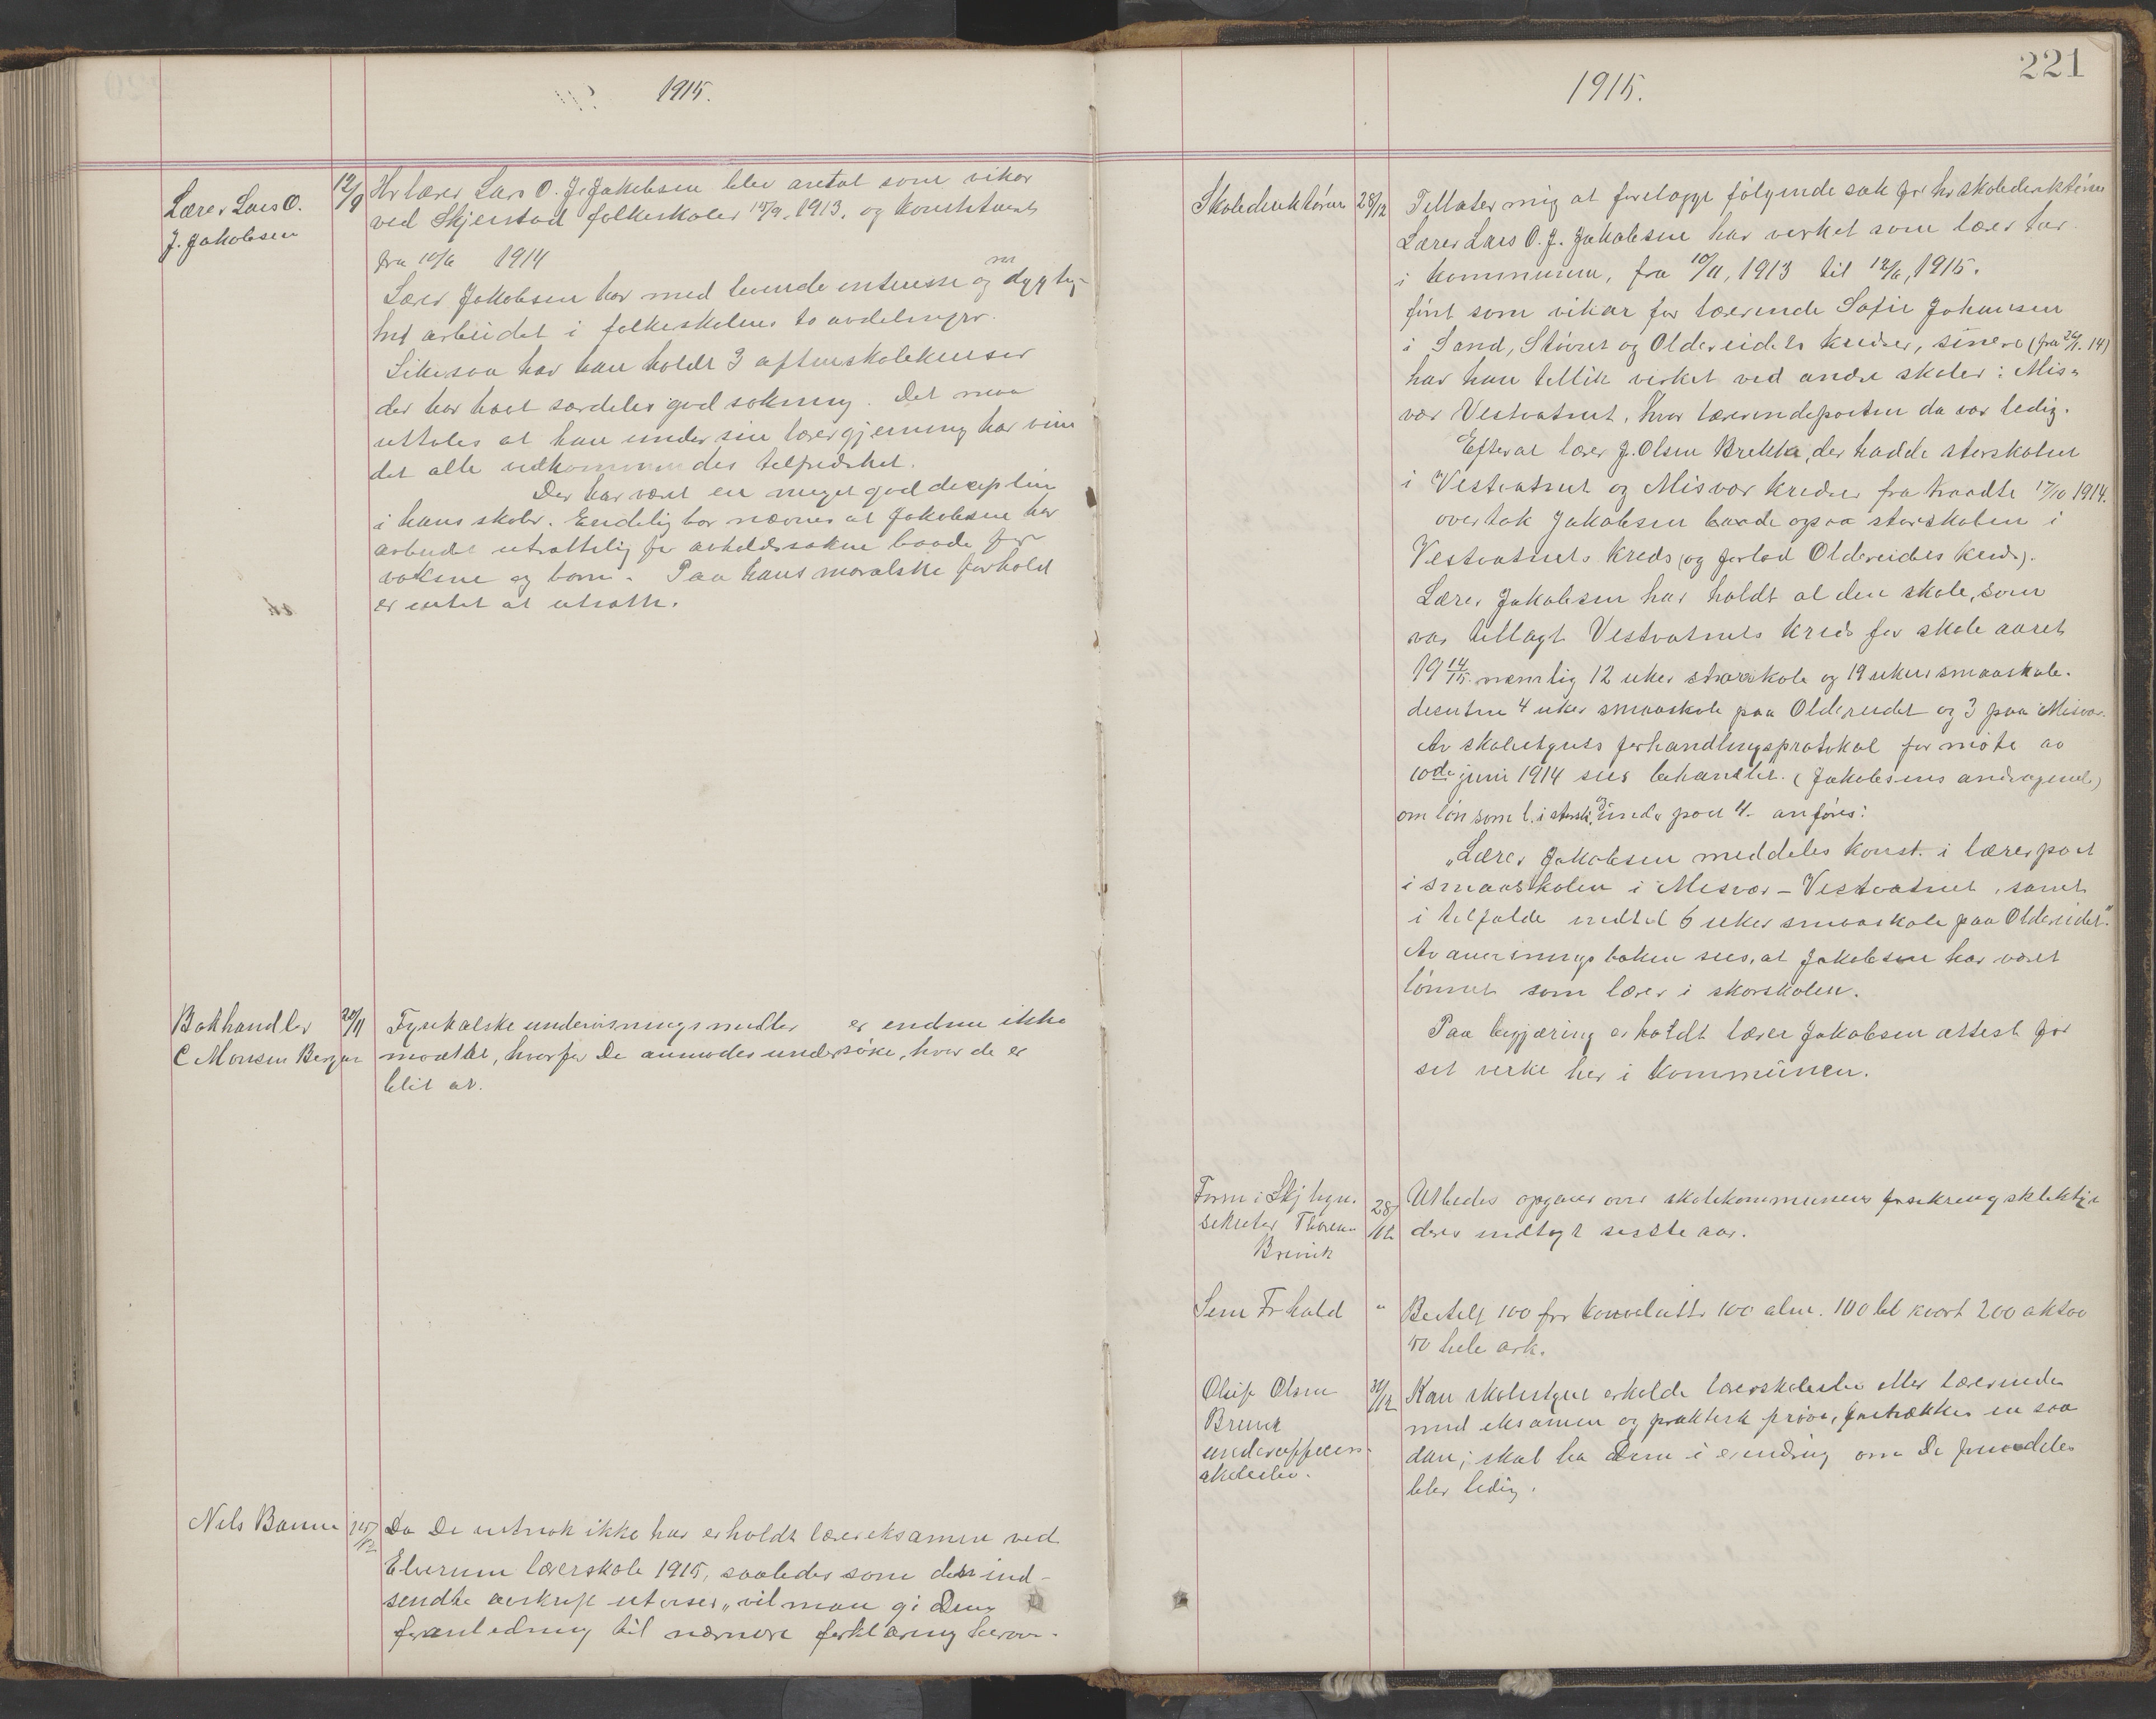 1915.
Lærer Lars O.
J. Jakobsen
12/9
Hr lærer Lars O. J. Jakobsen blev antat som vikar
ved Skjerstad folkeskoler 15/9. 1913. og konstituert
fra 10/6 1914
Lærer Jakobsen har med levende interesse og dygtig-
het arbeidet i folkeskolens to avdelinger.
Likesaa har han holdt 3 aftenskolekurser
der har hat særdeles god søkning. Det maa
uttales at han under sin lærergjerning har vun
det alle vedkommendes tilfredshet.
Der har været en meget god deciplin
i hans skoler. Endelig bør nævnes at Jakobsen har
arbeidet utrættelig for avholdssaken baade for
voksne og barn. Paa hans moralske forhold
er intet at utsætte.
Bokhandler
C Monsen Bergen
20/11
Fysikalske undervisningsmidler er endnu ikke
mottat, hvorfor De anmodes undersøke, hvor de er
blit av.
Nils Baune
15/12
Da De netnok ikke har erholdt lærereksamen ved
Elverum lærerskole 1915, saaledes som den ind-
sendte avskrift utviser, vil man gi Dem
foranledning til nærmere forklaring herover.
221
1915.
Skoledirektøren
28/12
Tillater mig at forelægge følgende sak for hr skoledirektøren
Lærer Lars O. J. Jakobsen har virket som lærer her
i kommunen, fra 10/11, 1913 til 12/6, 1915.
først som vikar for lærerinde Sofie Johansen
i Sand, Støvset og Oldereidets kredser, senere (fra 26/1. 14)
har han tillike virket ved andre skoler: Mis-
vær Vestvatnet, hvor lærerindeposten da var ledig.
Efterat lærer J. Olsen Brekke, der hadde storskolen
i Vestvatnet og Misvær kredser fratraadte 17/10 1914.
overtok Jakobsen baade ogsaa storskolen i
Vestvatnets kreds (og forlod Oldereidets kreds).
Lærer Jakobsen har holdt al den skole, som
var tillagt Vestvatnets kreds for skoleaaret
19 14/15. nemlig 12 uker storskole og 19 ukers smaaskole.
desuten 4 uker smaaskole paa Oldereidet og 3 paa Misvær.
Av skolestyrets forhandlingsprotokol for møte av
10de juni 1914 sees behandlet. (Jakobsens andragende)
om løn som l. i storsk. og under post 4. anføres:
„Lærer Jakobsen meddeles konst. i lærerpost
i smaaskolen i Misvær – Vestvatnet, samt
i tilfælde indtil 6 uker smaaskole paa Oldereidet."
Av anvisningsboken sees, at Jakobsen har været
lønnet som lærer i storskolen.
Paa begjæring erholdt lærer Jakobsen attest for
sit virke her i kommunen.
Form i Skj
28/12
Utbedes opgaver over skolekommunens
deres indtægt sidste aar.
Sem Fr hald
"
Bestilt 100 for konvolutter 100 alm. 100 bl kvart 200 oktav
50 hele ark.
Oluf Olsen
31/12
Kan skolestyret erholde lærerskole eller lærerinde
med eksamen og praktisk prøve, foretrækkes en saa
dan; skal ha Dem i erindring om De fremdeles
blir ledig.